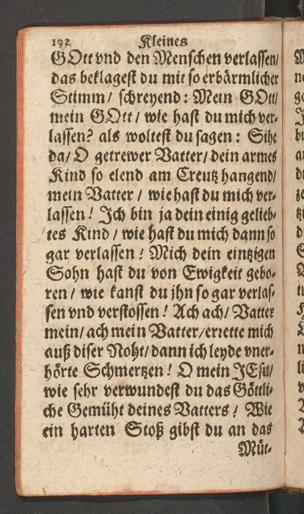 192 Kleines
GOtt vnd den Menschen verlassen/
das beklagest du mit so erbärmlicher
Stimm/ schreyend: Mein GOtt/
mein GOtt/ wie hast du mich ver-
lassen? als woltest du sagen: Sihe
da/ O getrewer Vatter/ dein armes
Kind so elend am Creutz hangend/
mein Vatter/ wie hast du mich ver-
lassen! Ich bin ja dein einig gelieb-
tes Kind/ wie hast du mich dann so
gar verlassen! Mich dein eintzigen
Sohn hast du von Ewigkeit gebo-
ren/ wie kanst du jhn so gar verlas-
sen vnd verstossen! Ach ach/ Vatter
mein/ ach mein Vatter/ errette mich
auß diser Noht/ dann ich leyde vner-
hörte Schmertzen! O mein JEsu/
wie sehr verwundest du das Göttli-
che Gemüht deines Vatters! Wie
ein harten Stoß gibst du an das
Müt-